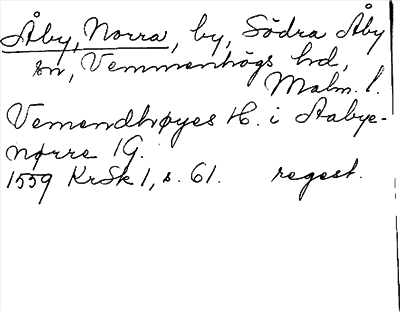 Åby, Norra, by, Södra Åby
sn, Vemmenhögs hd,
Malm. l.
Vemendhøyes H. i Aabye-
nørre 1G.
1559 KrSk 1, s. 61. regest.